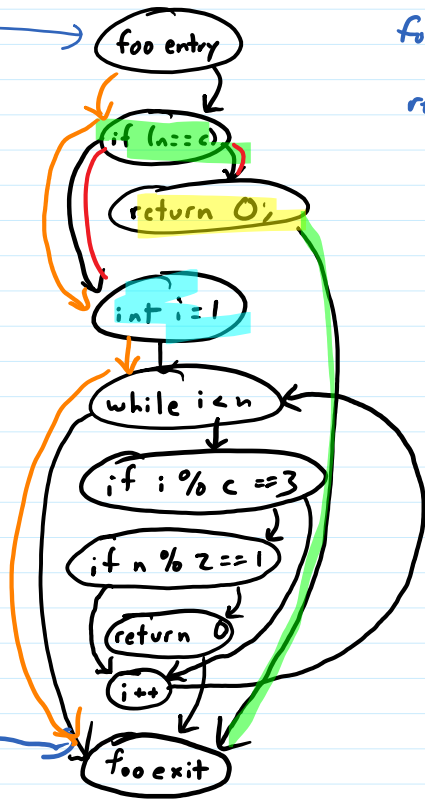 foo entry
fo
if (n==c)
return 0;
int i=1
while i<n
if i % c ==3
if n % 2==1
return 0
i++
foo exit